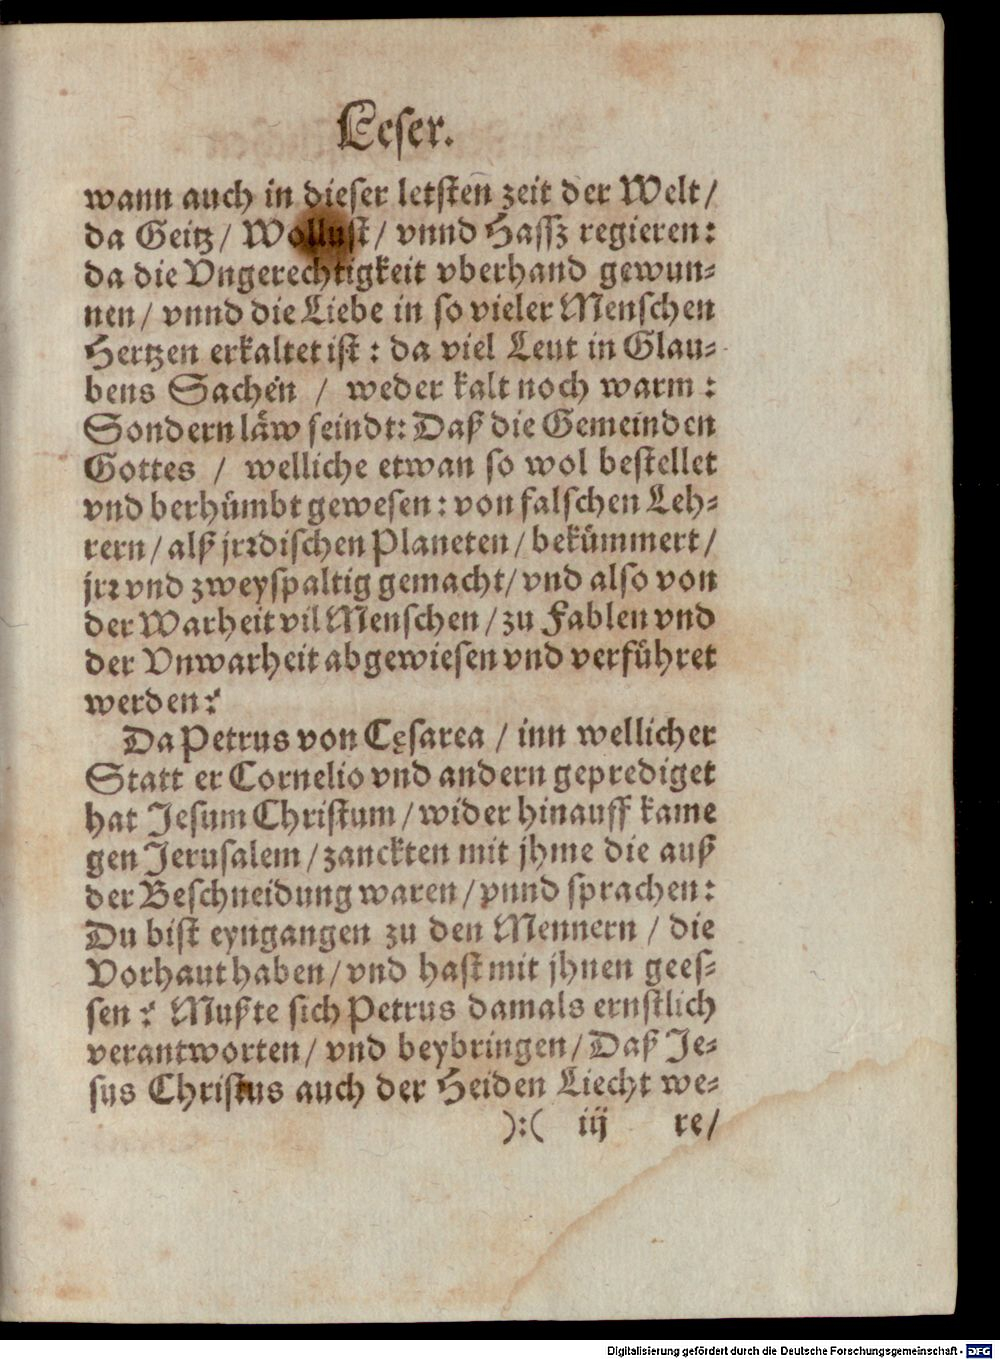 Leser.
wann auch in dieser letsten zeit der Welt/
da Geitz/ Wollust/ vnnd Hassz regieren:
da die Vngerechtigkeit vberhand gewun-
nen/ vnnd die Liebe in so vieler Menschen
Hertzen erkaltet ist: da viel Leut in Glau-
bens Sachen / weder kalt noch warm:
Sondern läw seindt: Daß die Gemeinden
Gottes / welliche etwan so wol bestellet
vnd berhümbt gewesen: von falschen Leh-
rern/ alß jrrdischen Planeten/ bekümmert/
jrr vnd zweyspaltig gemacht/ vnd also von
der Warheit vil Menschen/ zu Fablen vnd
der Vnwarheit abgewiesen vnd verführet
werden?
Da Petrus von Cęsarea / inn wellicher
Statt er Cornelio vnd andern geprediget
hat Jesum Christum/ wider hinauff kame
gen Jerusalem/ zanckten mit jhme die auß
der Beschneidung waren/ vnnd sprachen:
Du bist eyngangen zu den Mennern / die
Vorhaut haben/ vnd hast mit jhnen gees-
sen? Mußte sich Petrus damals ernstlich
verantworten/ vnd beybringen/ Daß Je-
sus Christus auch der Heiden Liecht we-
):( iij re/
Digitalisierung gefördert durch die Deutsche Forschungsgemeinschaft - DFG